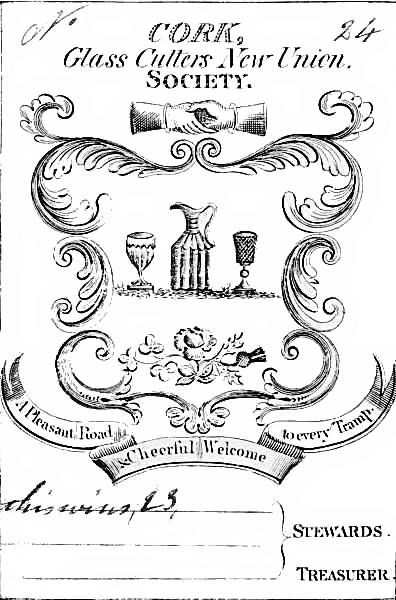 No. 24
CORK,
Glass Cutters New Union.
SOCIETY.
A Pleasant Road
& Cheerful Welcome
to every Tramp.
23,
STEWARDS.
TREASURER